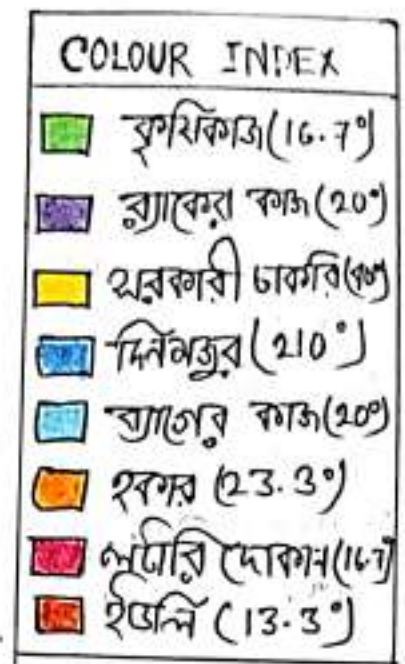 COLOUR INDEX
কৃষিকাজ (16.7°)
ব্যাংকের কাজ (20°)
সরকারী চাকরি
দিনমজুর (210°)
ব্যাগের কাজ (20°)
হকার (23.3°)
লটারি দোকান (16.7)
ইডলি (13.3°)